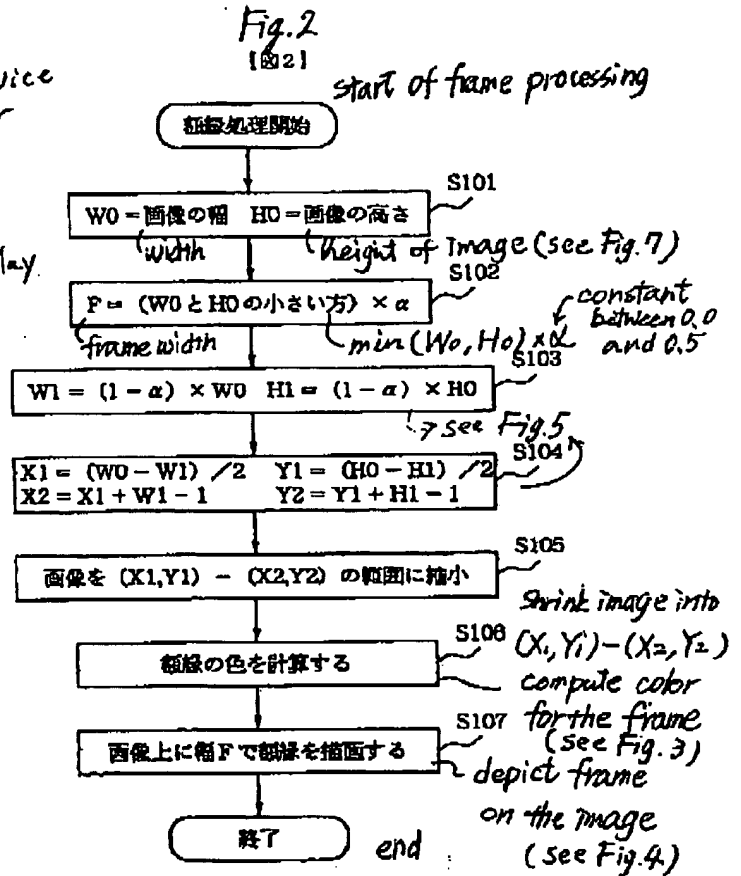 Fig.2
【図2】
start of frame processing
額縁処理開始
S101
W0=画像の幅 H0=画像の高さ
width
height of image (see Fig.7)
S102
F=(W0とH0の小さい方)×α
constant
between 0.0
and 0.5
frame width
min(W0, H0)×α
S103
W1=(1-α)×W0 H1=(1-α)×H0
see Fig.5
S104
X1=(W0-W1)/2 Y1=(H0-H1)/2
X2=X1+W1-1 Y2=Y1+H1-1
S105
画像を(X1,Y1)-(X2,Y2)の範囲に縮小
shrink image into
(X1, Y1)-(X2, Y2)
S106
額縁の色を計算する
compute color
for the frame
(see Fig.3)
S107
画像上に幅Fで額縁を描画する
depict frame
on the image
(see Fig.4)
終了
end